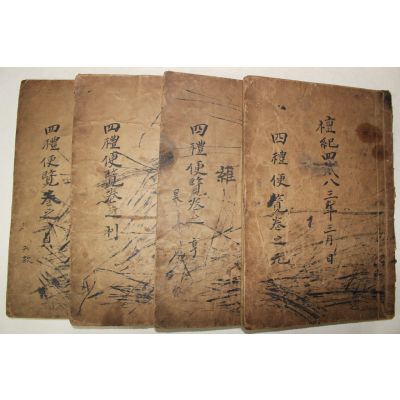 檀紀四二八三年三月日
四禮便覽卷之元
四禮便覽卷之亨
四禮便覽卷之利
四禮便覽卷之貞